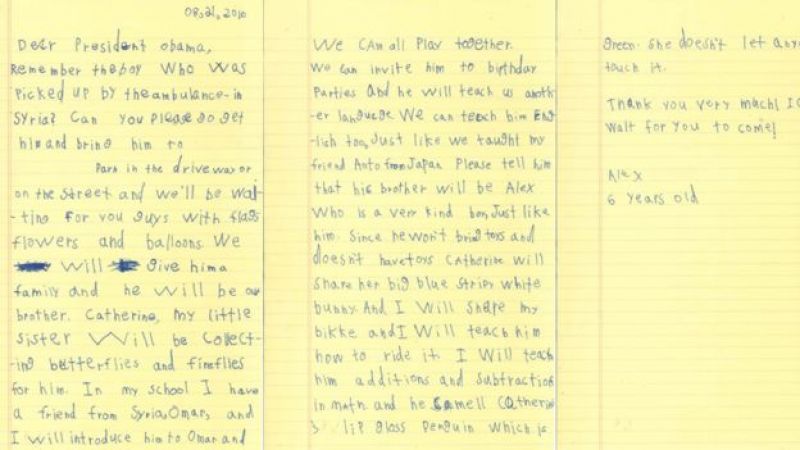 08.21.2016
Dear President obama,
Remember the boy who was
picked up by the ambulance in
Syria? Can you please go get
him and bring him to
Park in the driveway or
on the street and we'll be wai-
-ting for you guys with flags
flowers and balloons. We
will give him a
family and he will be our
brother. Catherine, my little
sister will be collect-
-ing butterflies and fireflies
for him. In my school I have
a friend from Syria, Omar, and
I will introduce him to Omar and
We can all play together.
We can invite him to birthday
parties and he will teach us anoth-
-er language. We can teach him Eng
-lish too, Just like we taught my
friend Aoto from Japan. Please tell him
that his brother will be Alex
who is a very kind boy, Just like
him. Since he won't bring toys and
doesn't have toys Catherine will
share her big blue stripy white
bunny. And I will share my
bikke and I will teach him
how to ride it. I will teach
him additions and subtractions
in math and he smell Catherine
's lip gloss penguin which is
green. She doesn't let any
touch it.
Thank you very much! I c
wait for you to come!
Alex
6 years old